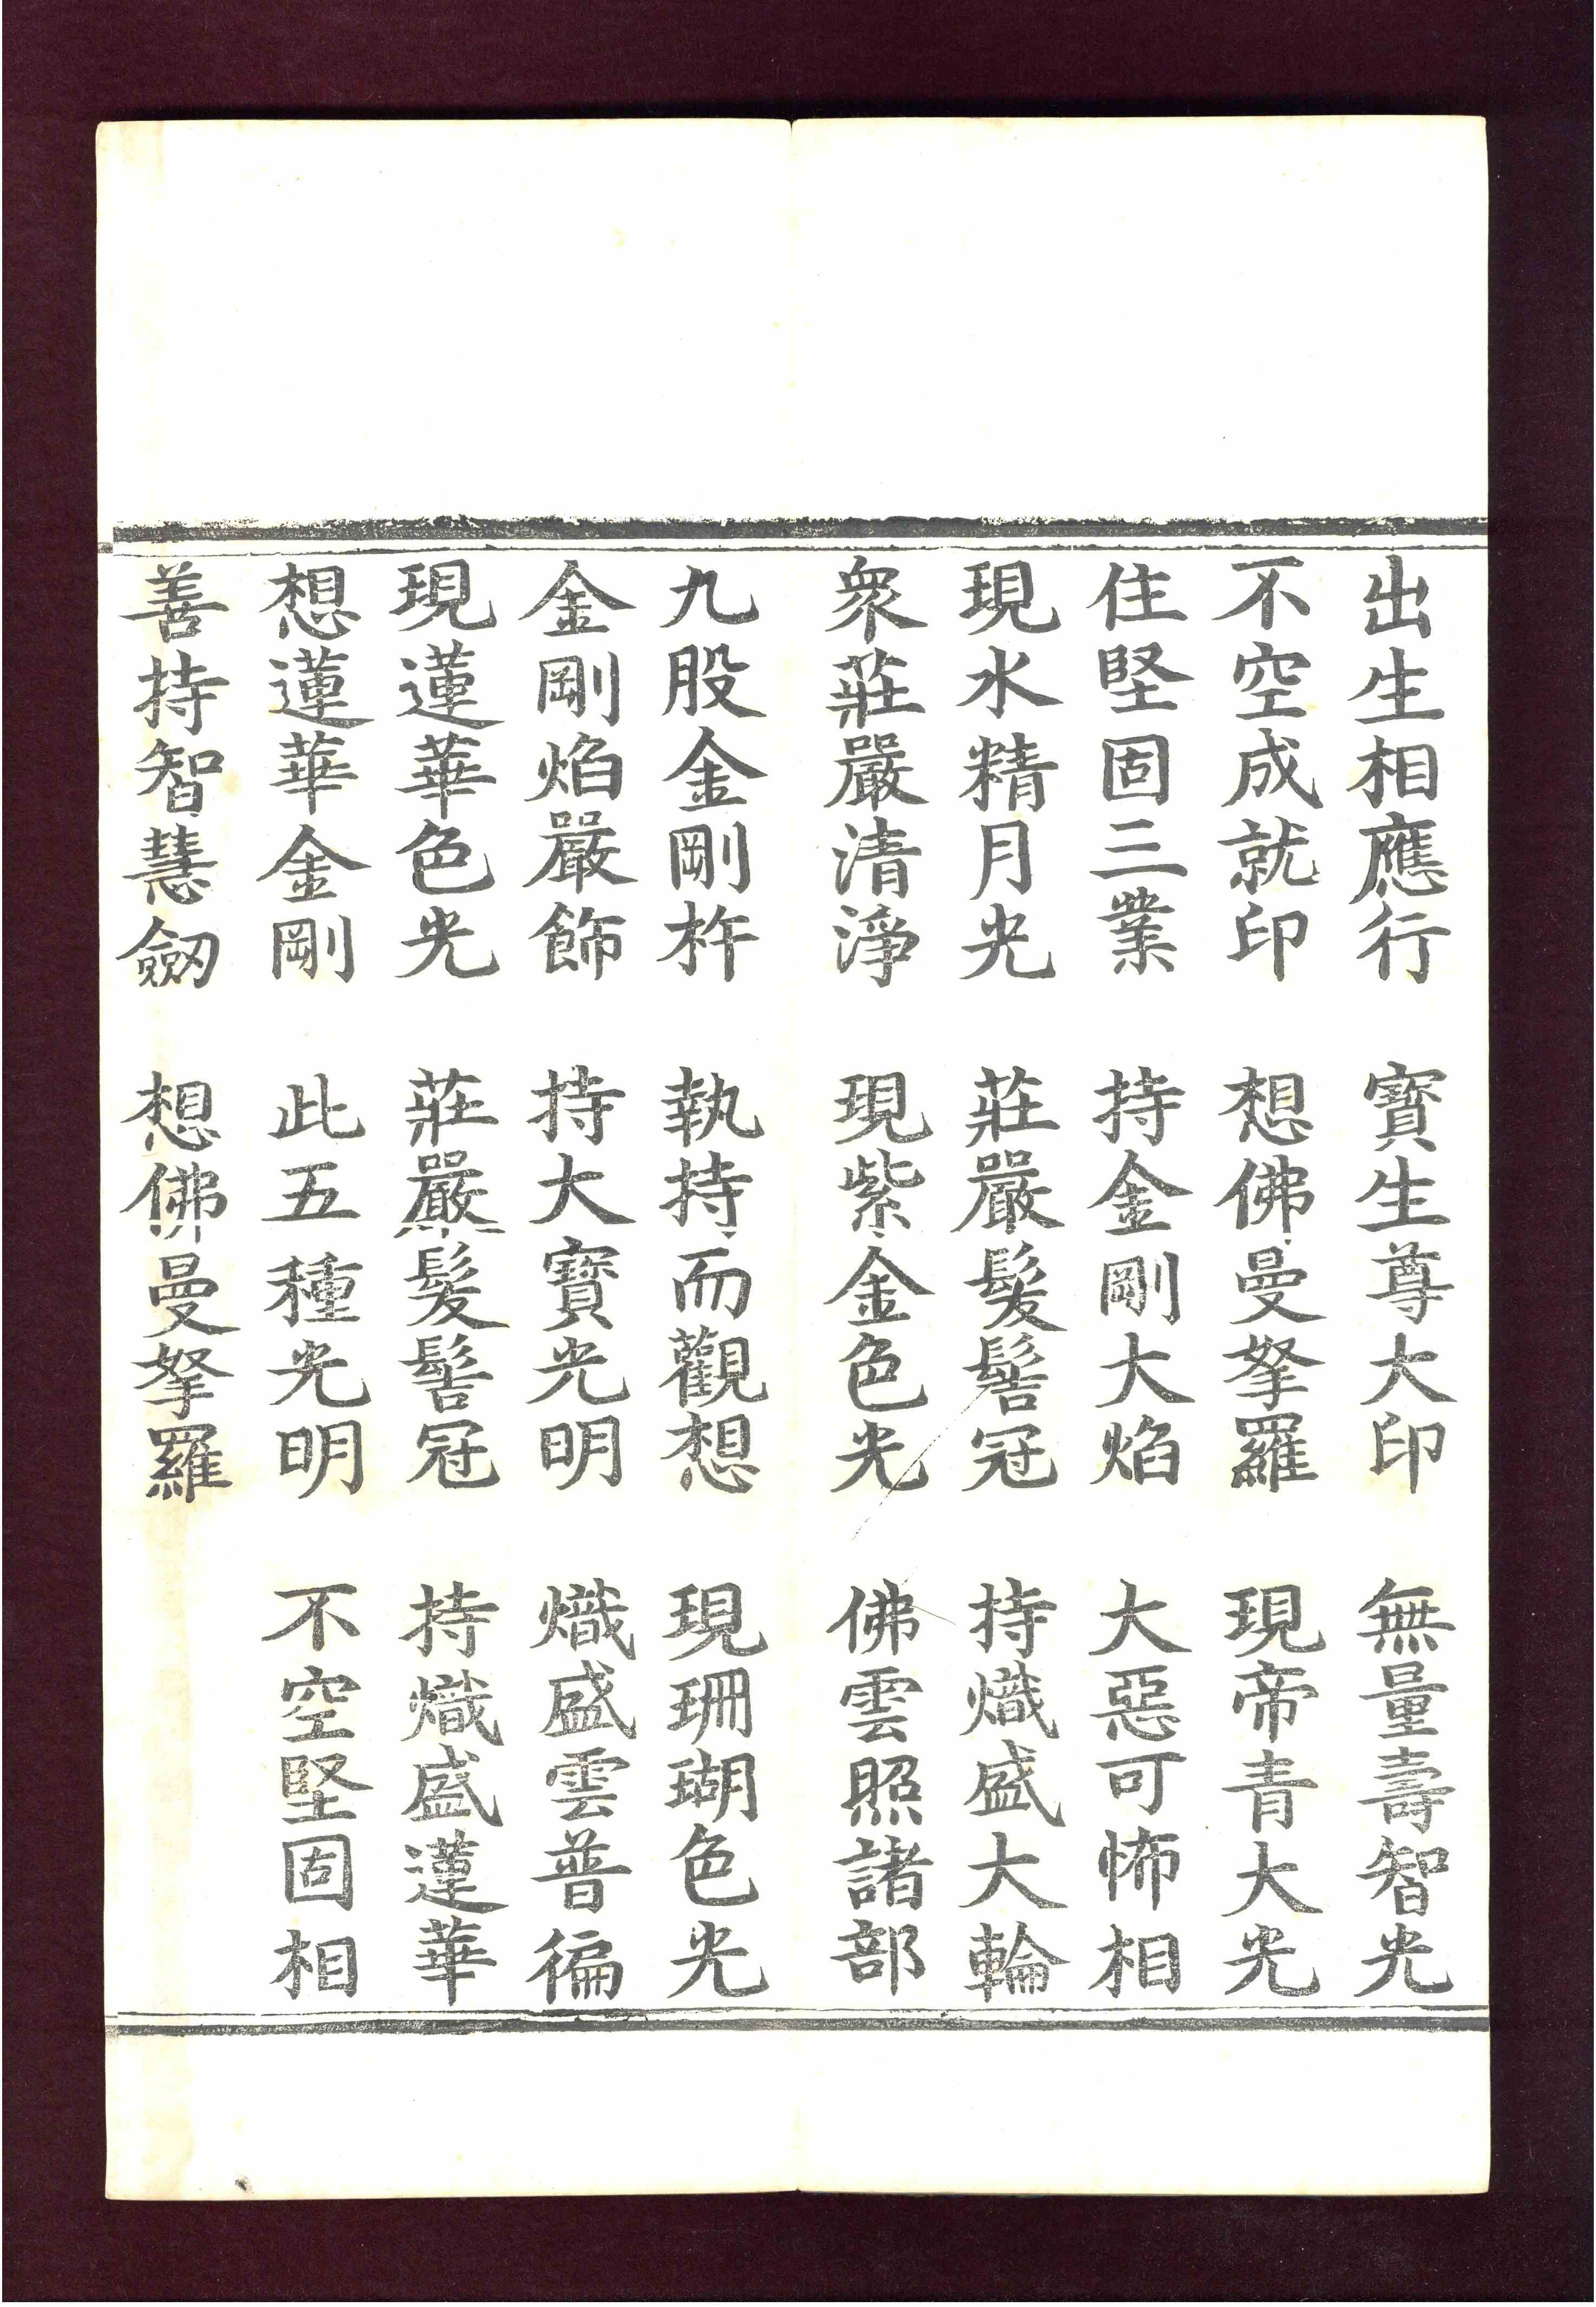 出生相應行　寶生尊大印　無量壽智光
不空成就印　想佛曼拏羅　現帝青大光
住堅固三業　持金剛大焰　大惡可怖相
現水精月光　莊嚴髮髻冠　持熾盛大輪
衆莊嚴清淨　現紫金色光　佛雲照諸部
九股金剛杵　執持而觀想　現珊瑚色光
金剛焰嚴飾　持大寶光明　熾盛雲普徧
現蓮華色光　莊嚴髮髻冠　持熾盛蓮華
想蓮華金剛　此五種光明　不空堅固相
善持智慧劒　想佛曼拏羅